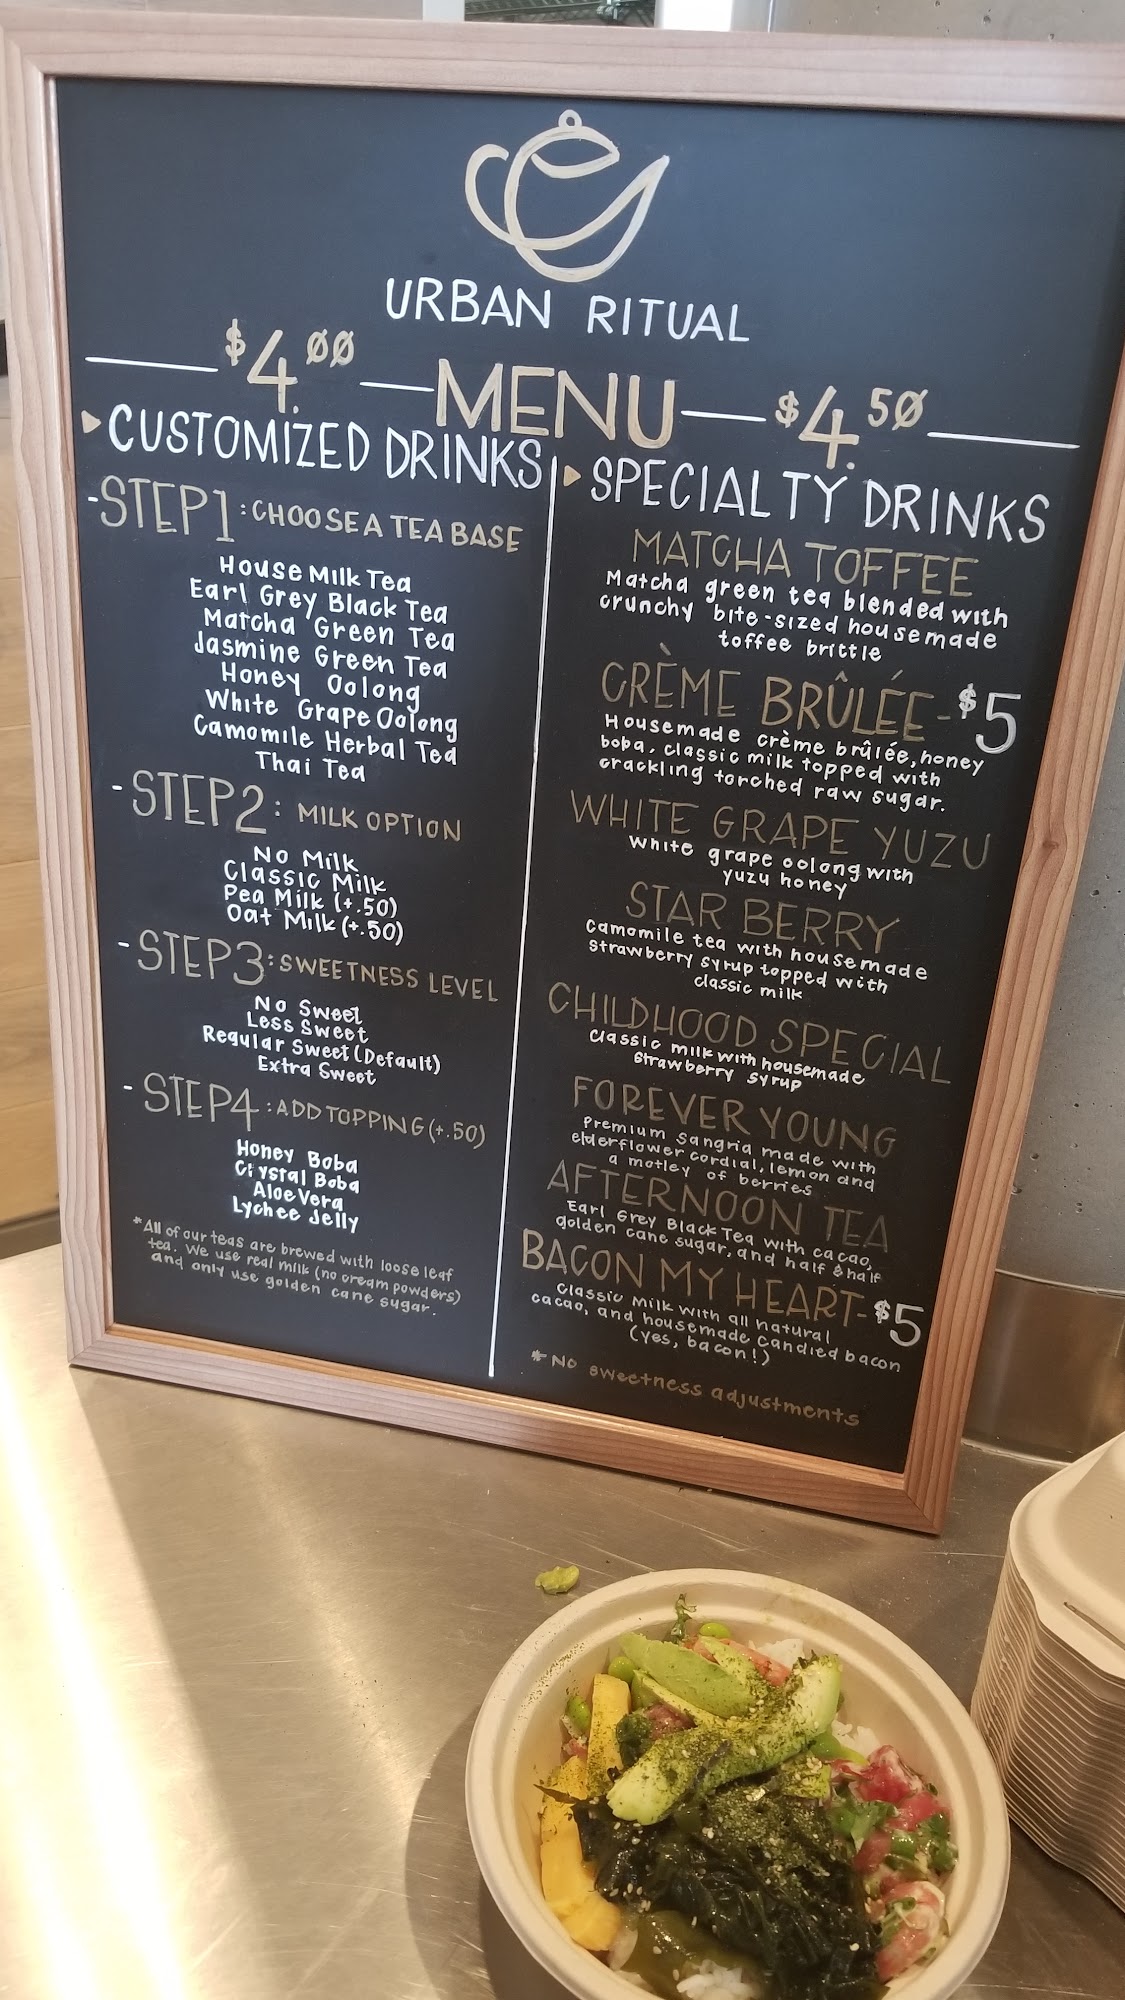 URBAN RITUAL
MENU
$4.00
CUSTOMIZED DRINKS
-STEP1: CHOOSE A TEA BASE
House Milk Tea
Earl Grey Black Tea
Matcha Green Tea
Jasmine Green Tea
Honey Oolong
White Grape Oolong
Camomile Herbal Tea
Thai Tea
-STEP2: MILK OPTION
No Milk
Classic Milk
Pea Milk (+.50)
Oat Milk (+.50)
-STEP3: SWEETNESS LEVEL
No Sweet
Less Sweet
Regular Sweet (Default)
Extra Sweet
-STEP4: ADD TOPPING (+.50)
Honey Boba
Crystal Boba
Aloe Vera
Lychee Jelly
*All of our teas are brewed with loose leaf
tea. We use real milk (no cream powders)
and only use golden cane sugar.
$4.50
SPECIALTY DRINKS
MATCHA TOFFEE
Matcha green tea blended with
crunchy bite-sized housemade
toffee brittle
CRÈME BRÛLÉE-$5
Housemade crème brûlée, honey
boba, classic milk topped with
crackling torched raw sugar.
WHITE GRAPE YUZU
White grape oolong with
yuzu honey
STAR BERRY
Camomile tea with housemade
strawberry syrup topped with
classic milk
CHILDHOOD SPECIAL
Classic milk with housemade
strawberry syrup
FOREVER YOUNG
Premium Sangria made with
elderflower cordial, lemon and
a motley of berries
AFTERNOON TEA
Earl Grey Black Tea with cacao,
golden cane sugar, and half & half
BACON MY HEART-$5
Classic Milk with all natural
cacao, and housemade candied bacon
(yes, bacon!)
*No sweetness adjustments